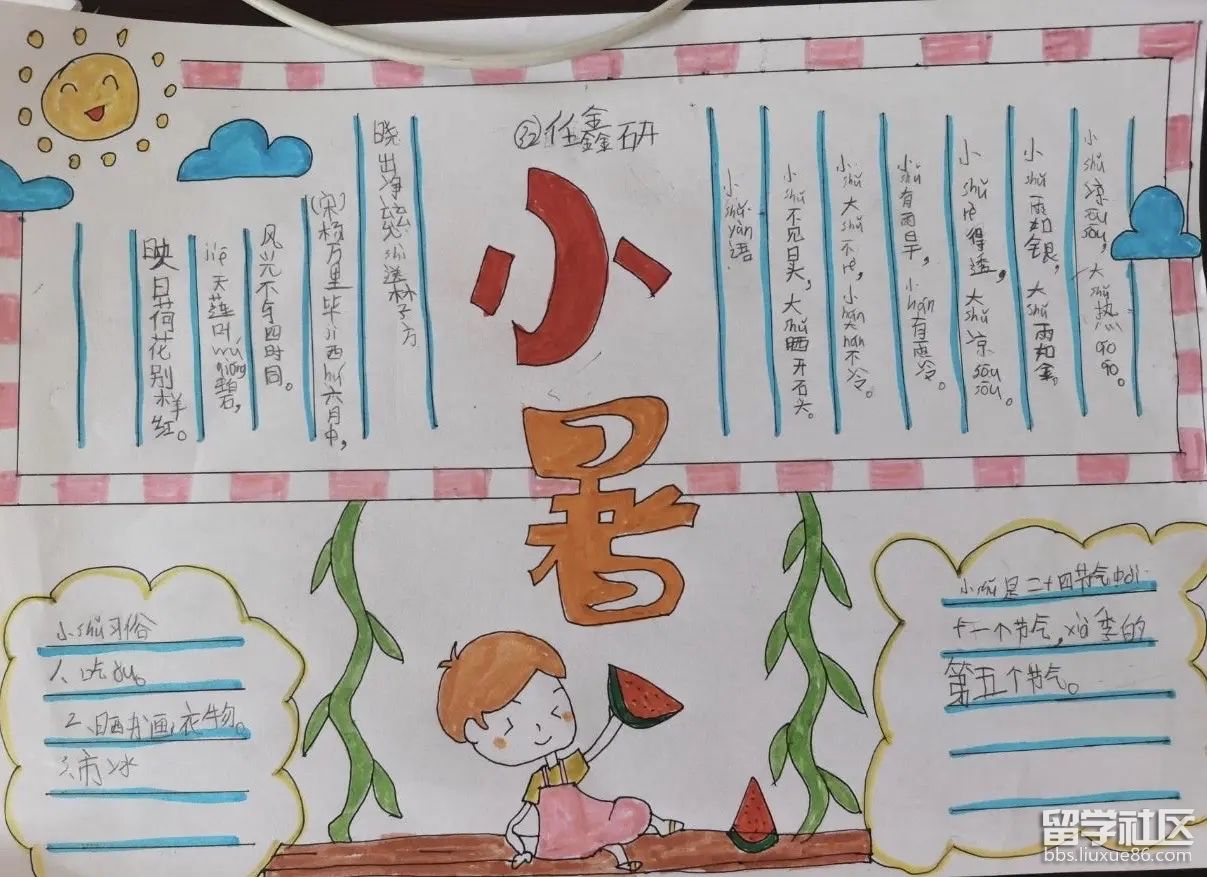 ㉜任鑫研
小暑
晓出净慈sì送林子方
(宋)杨万里毕jì西hú六月中，
风光不与四时同。
jiē天莲叶wú qióng碧，
映日荷花别样红。
小shǔ yàn语
小shǔ不见日头，大shǔ晒开石头。
小shǔ大shǔ不rè，小hán大hán不冷。
小shǔ有雨旱，小hán有雨冷。
小shǔ rè得透，大shǔ凉sōu sōu。
小shǔ雨如银，大shǔ雨如金。
小shǔ凉sōu sōu，大shǔ热
小shǔ习俗
1、吃
2、晒书画、衣物。
冰
小shǔ是二十四节气中di
十一个节气，xià季的
第五个节气。
留学社区
bbs.liuxue86.com